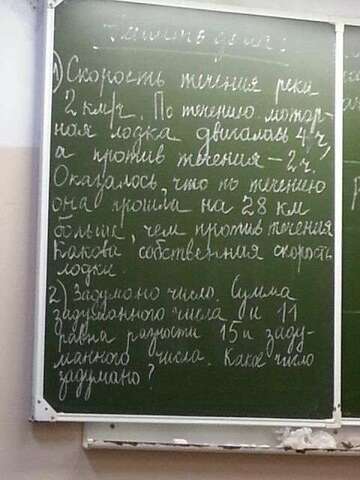 Решить дома:
1) Скорость течения реки
2 км/ч. По течению мотор-
ная лодка двигалась 4 ч,
а против течения - 2 ч.
Оказалось, что по течению
она прошла на 28 км
больше, чем против течения
Какова собственная скорость
лодки.
2) Задумано число. Сумма
задуманного числа и 11
равна разности 15 и заду-
манного числа. Какое число
задумано?